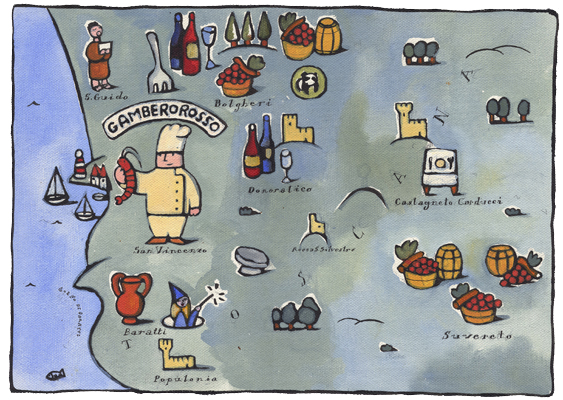 S.Guido
Bolgheri
GAMBEROROSSO
Donoratico
Castagneto Carducci
San Vincenzo
Rocca S.Silvestro
Baratti
Populonia
Suvereto
T O S C A N A